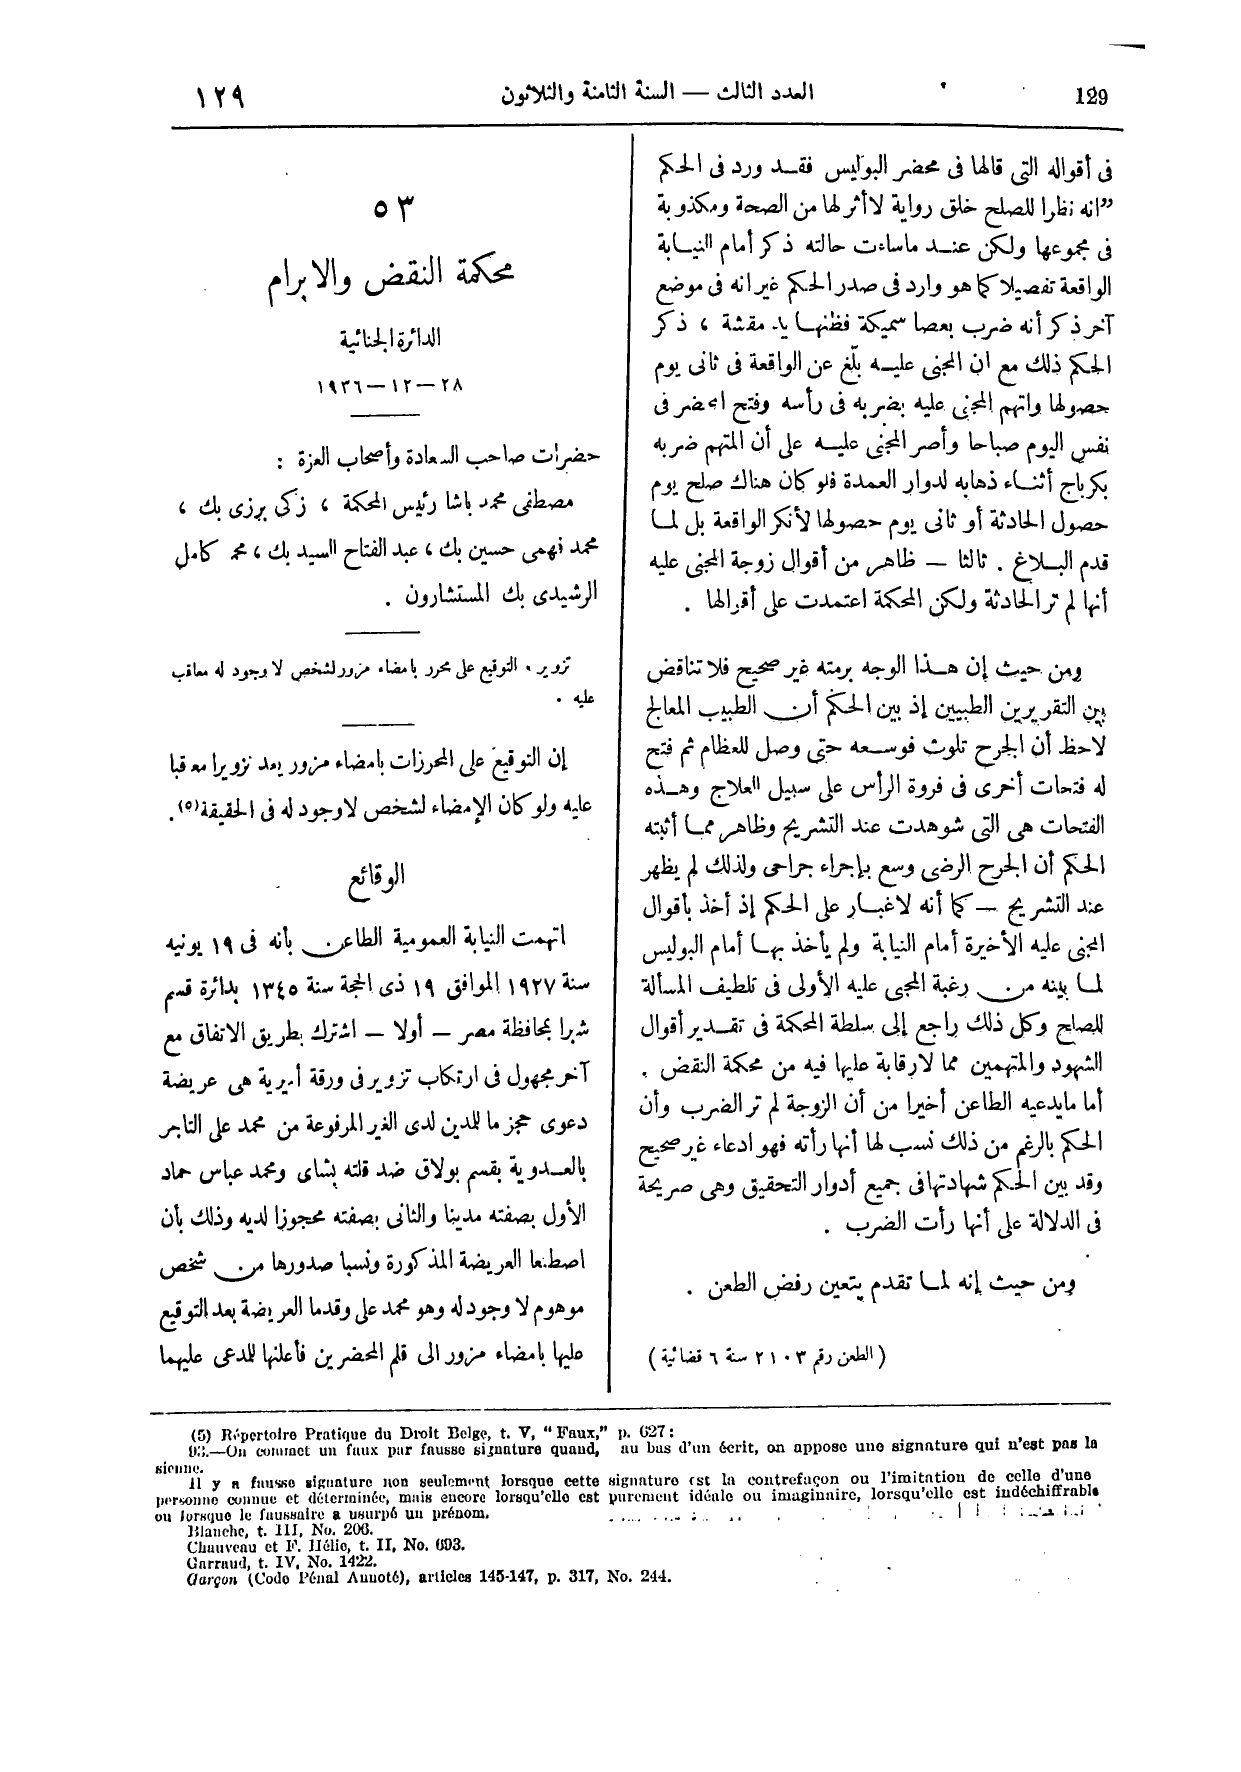 129
العدد الثالث — السنة الثامنة والثلاثون
١٢٩
فى أقواله التى قالها فى محضر البوليس فقد ورد فى الحكم
”انه نظرا للصلح خلق رواية لا أثر لها من الصحة ومكذوبة
فى مجموعها ولكن عند ماساءت حالته ذكر أمام النيابة
الواقعة تفصيلا كما هو وارد فى صدر الحكم غير انه فى موضع
آخر ذكر أنه ضرب بعصا سميكة فظنها يد مقشة ، ذكر
الحكم ذلك مع ان المجنى عليه بلّغ عن الواقعة فى ثانى يوم
حصولها واتهم المجنى عليه بضربه فى رأسه وفتح المحضر فى
نفس اليوم صباحا وأصر المجنى عليه على أن المتهم ضربه
بكرباج أثناء ذهابه لدوار العمدة فلو كان هناك صلح يوم
حصول الحادثة أو ثانى يوم حصولها لأنكر الواقعة بل لما
قدم البلاغ . ثالثا — ظاهر من أقوال زوجة المجنى عليه
أنها لم تر الحادثة ولكن المحكمة اعتمدت على أقوالها .
ومن حيث إن هذا الوجه برمته غير صحيح فلا تناقض
بين التقريرين الطبيين إذ بين الحكم أن الطبيب المعالج
لاحظ أن الجرح تلوث فوسعه حتى وصل للعظام ثم فتح
له فتحات أخرى فى فروة الرأس على سبيل العلاج وهذه
الفتحات هى التى شوهدت عند التشريح وظاهر مما أثبته
الحكم أن الجرح الرضى وسع بإجراء جراحى ولذلك لم يظهر
عند التشريح — كما أنه لاغبار على الحكم إذ أخذ بأقوال
المجنى عليه الأخيرة أمام النيابة ولم يأخذ بها أمام البوليس
لما بينه من رغبة المجنى عليه الأولى فى تلطيف المسألة
للصلح وكل ذلك راجع إلى سلطة المحكمة فى تقدير أقوال
الشهود والمتهمين مما لارقابة عليها فيه من محكمة النقض .
أما مايدعيه الطاعن أخيرا من أن الزوجة لم تر الضرب وأن
الحكم بالرغم من ذلك نسب لها أنها رأته فهو ادعاء غير صحيح
وقد بين الحكم شهادتها فى جميع أدوار التحقيق وهى صريحة
فى الدلالة على أنها رأت الضرب .
ومن حيث إنه لما تقدم يتعين رفض الطعن .
(الطعن رقم ٢١٠٣ سنة ٦ قضائية)
٥٣
محكمة النقض والابرام
الدائرة الجنائية
٢٨—١٢—١٩٣٦
حضرات صاحب السعادة وأصحاب العزة :
مصطفى محمد باشا رئيس المحكمة ، زكى برزى بك ،
محمد فهمى حسين بك ، عبد الفتاح السيد بك ، محمد كامل
الرشيدى بك المستشارون .
تزوير . التوقيع على محرر بامضاء مزور لشخص لا وجود له معاقب
عليه .
إن التوقيع على المحررات بامضاء مزور يعد تزويرا معاقبا
عليه ولو كان الإمضاء لشخص لاوجود له فى الحقيقة(٥).
الوقائع
اتهمت النيابة العمومية الطاعن بأنه فى ١٩ يونيه
سنة ١٩٢٧ الموافق ١٩ ذى الحجة سنة ١٣٤٥ بدائرة قسم
شبرا بمحافظة مصر — أولا — اشترك بطريق الاتفاق مع
آخر مجهول فى ارتكاب تزوير فى ورقة أميرية هى عريضة
دعوى حجز ما للمدين لدى الغير المرفوعة من محمد على التاجر
بالعدوية بقسم بولاق ضد قلته بشاى ومحمد عباس حماد
الأول بصفته مدينا والثانى بصفته محجوزا لديه وذلك بأن
اصطنعا العريضة المذكورة ونسبا صدورها من شخص
موهوم لا وجود له وهو محمد على وقدما العريضة بعد التوقيع
عليها بامضاء مزور الى قلم المحضرين فأعلنها للمدعى عليهما
(5) Répertoire Pratique du Droit Belge, t. V, “ Faux,” p. 627:
93.—On commet un faux par fausse signature quand, au bas d’un écrit, on appose une signature qui n’est pas la
sienne.
Il y a fausse signature non seulement lorsque cette signature est la contrefaçon ou l’imitation de celle d’une
personne connue et déterminée, mais encore lorsqu’elle est purement idéale ou imaginaire, lorsqu’elle est indéchiffrable
ou lorsque le faussaire a usurpé un prénom.
Blanche, t. III, No. 206.
Chauveau et F. Hélie, t. II, No. 693.
Garraud, t. IV, No. 1422.
Garçon (Code Pénal Annoté), articles 145-147, p. 317, No. 244.